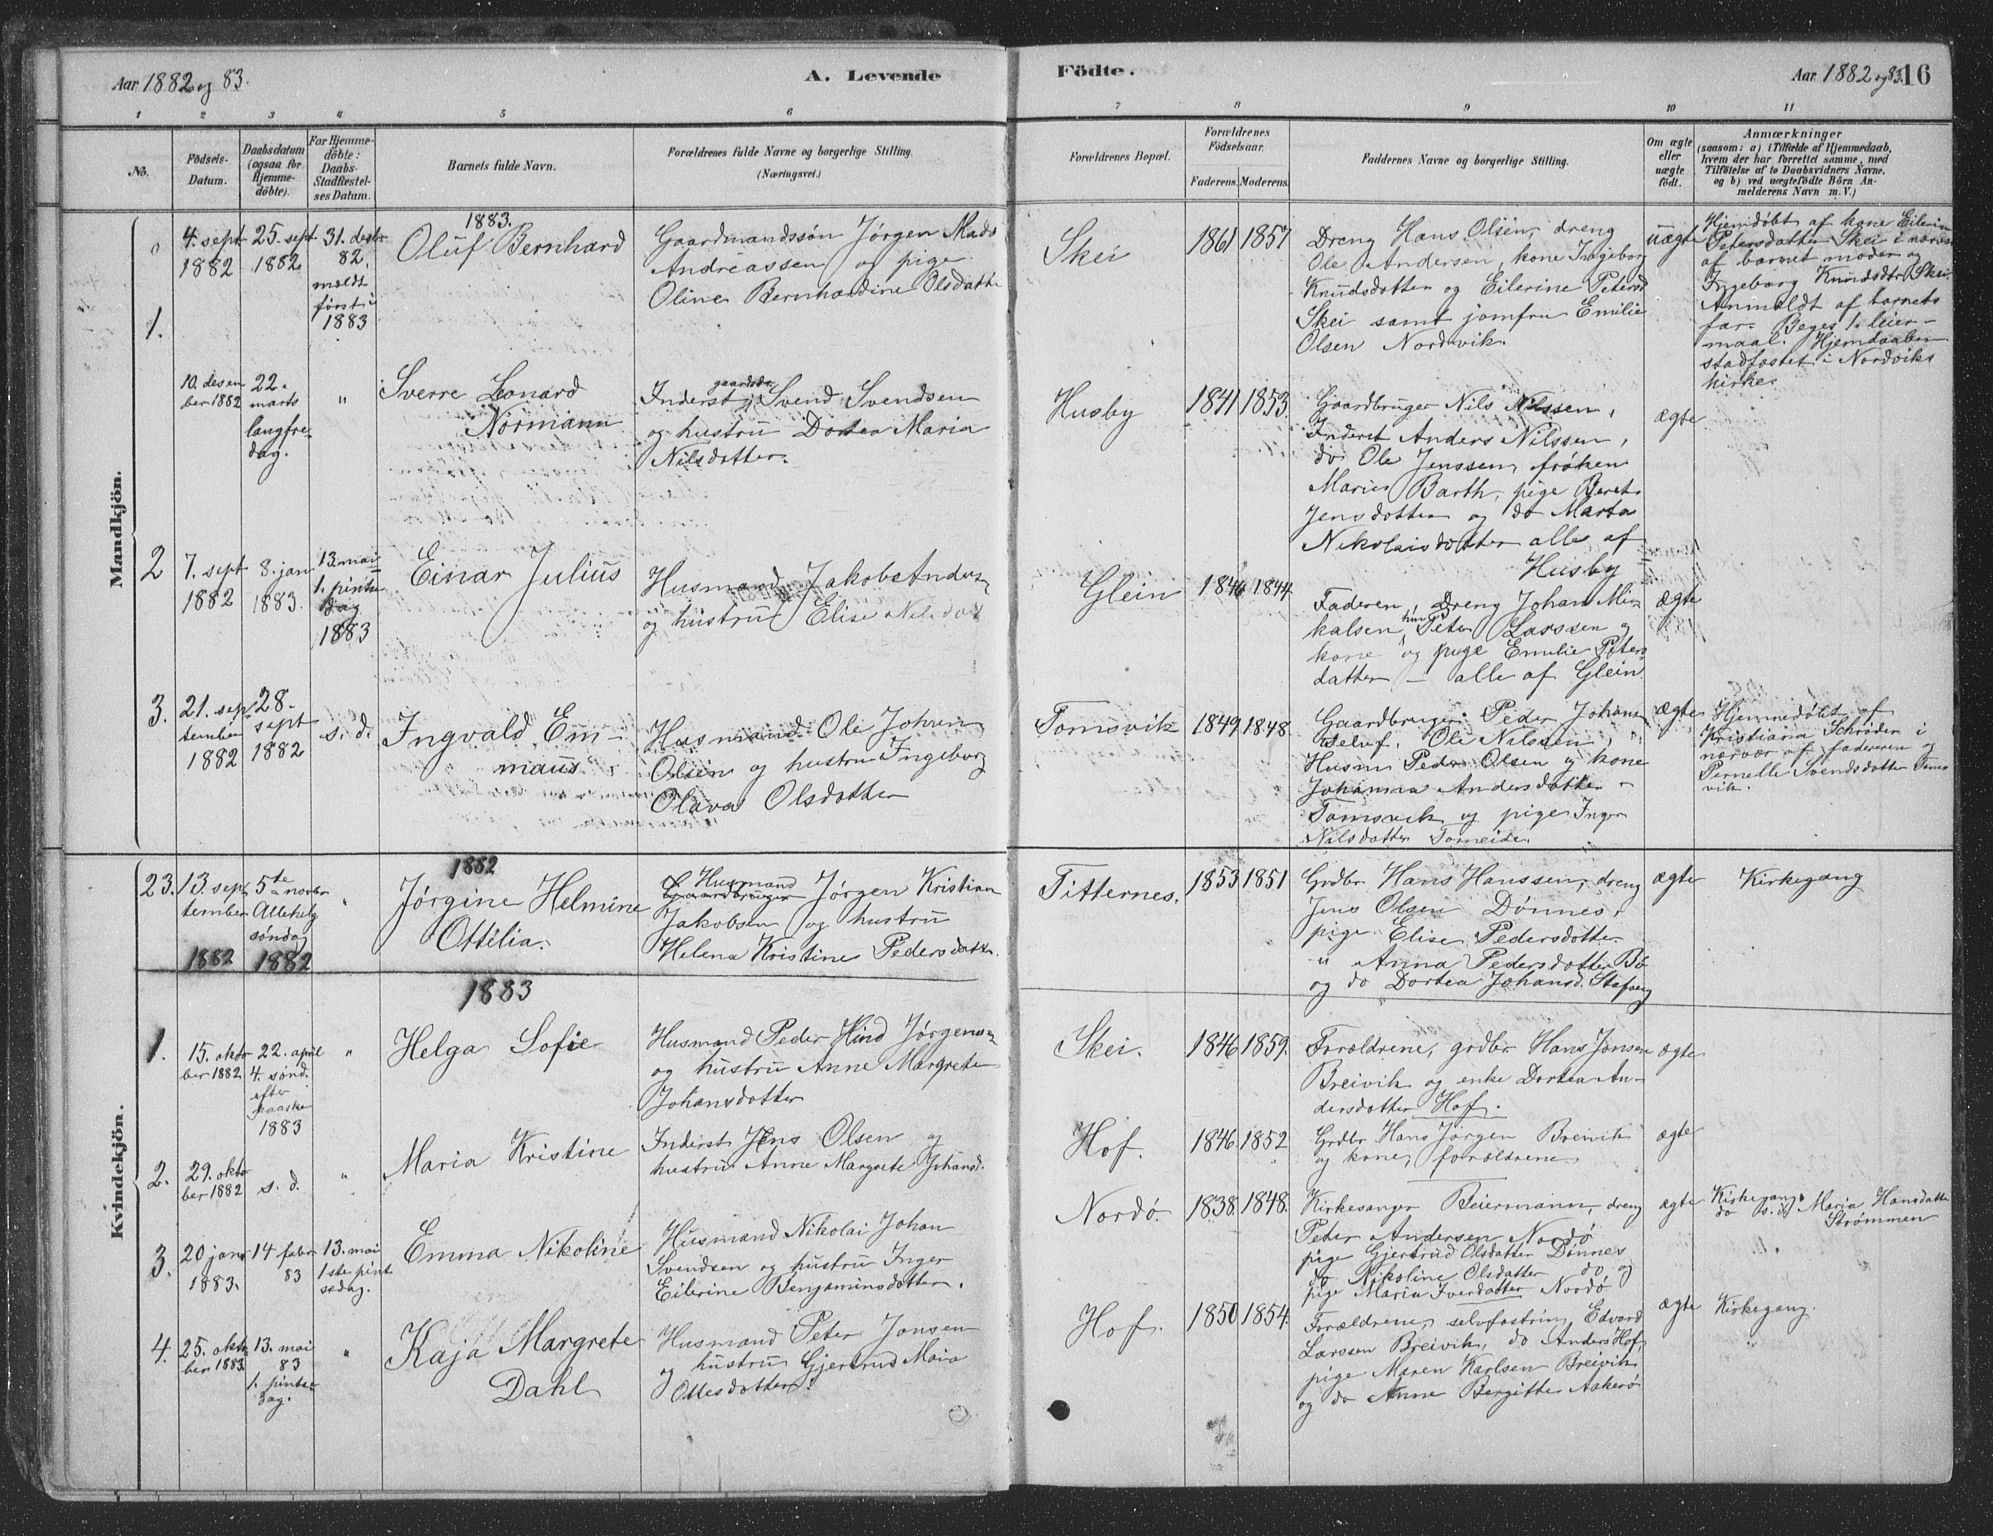 Aar 1882 og 83.
A. Levende
Födte.
Aar 1882 og 83. 16
1 2 3 4 5 6 7 8 9 10 11
No.
Födsels-
Datum.
Daabsdatum
(ogsaa for
Hjemme-
döbte).
For Hjemme-
döbte:
Daabs-
Stadfæstel-
ses Datum.
Barnets fulde Navn.
Forældrenes fulde Navne og borgerlige Stilling.
(Næringsvei.)
Forældrenes Bopæl.
Forældrenes
Födselsaar.
Faderens. Moderens.
Faddernes Navne og borgerlige Stilling.
Om ægte
eller
uægte
födt.
Anmærkninger
(saasom: a) i Tilfælde af Hjemmedaab,
hvem der har forrettet samme, med
Tilföielse af to Daabsvidners Navne,
og b) ved uægtefödte Börn An-
melderens Navn m. V.)
Mandkjön.
1.
4. sept
1882
25. sept
1882
31. desbr
82,
meldt
først i
1883
1883.
Oluf Bernhard
Gaardmandssön Jørgen Mads
Andreassen og pige
Oline Bernhardine Olsdatter
Skei
1861 1857
Dreng Hans Olsen, dreng
Ole Andersen, kone Ingeborg
Knudsdatter og Eilerine Petersd
Skei samt jomfru Emilie
Olsen Nordvik.
uægte
Hjemdøbt af kone Eilerine
Petersdatter Skei i nærvær
af barnet moder og
Ingeborg Knudsdtr Skei.
Anmeldt af barnets
far. Beges 1. leier-
maal. Hjemdaaben
stadfæstet i Nordviks
kirke.
10. desem
ber 1882
22.
marts
langfre-
dag.
"
Sverre Leonard
Normann
gaardsbr
Inderst, Svend Svendsen
og hustru Dortea Maria
Nilsdatter.
Husby
1841 1853.
Gaardbruger Nils Nilssen,
Inderst Anders Nilssen,
do Ole Jenssen, frøken
Marie Barth, pige Beret
Jensdatter og do Marta
Nikolaisdatter alle af
Husby
ægte
2
7. sept
1882
8. jan
1883.
13. mai
1. pintse
dag
1883
Einar Julius
Husmand Jakob Anders
og hustru Elise Nilsdat
Glein
1846 1844.
Faderen, Dreng Johan Mi-
kalsen, hm Peter Larssen og
kone og pige Emilie Peters-
datter – alle af Glein.
ægte
3.
21. sep
tember
1882
28.
sept
1882
s. d.
Ingvald Em-
maus
Husmand Ole Johan
Olsen og hustru Ingeborg
Olava Olsdatter
Tomsvik
1849. 1848.
Gaardbruger Peder Johans
Selvf. Ole Nilssen,
Husm Peder Olsen og kone
Johanna Andersdatter
Tomsvik og pige Inger
Nilsdatter Tomeide
ægte
Hjemmedøbt af
Kristiania Schrøder i
nærvær af faderen og
Pernelle Svendsdatter Toms
vik.
Kvindekjön.
23.
13. sep
tember
1882
5te
novbr
Allehelg
sønda
1882
"
1882
Jørgine Helmine
Ottilia.
Husmand
Gaardbruger Jørgen Kristian
Jakobsen og hustru
Helena Kristine Pedersdatter.
Titternes.
1853 1851
Grdbr Hans Hanssen, dreng
Jens Olsen Dønnes,
pige Elise Pedersdatter
" Anna Pedersdatter Bø
og do Dortea Johansd.
ægte
Kirkegang
1883
1.
15. okto
ber 1882
22. april
4. sønd.
efter
paaske
1883
"
Helga Sofie
Husmand Peder Hind Jørgens
og hustru Anne Margrete
Johansdatter
Skei.
1846 1859.
Forældrene, grdbr. Hans Jonsen
Breivik og enke Dortea An-
dersdatter Hof.
ægte
2.
29. okto
ber 1882
s. d.
"
Maria Kristine
Inderst Jens Olsen og
hustru Anne Margrete Johansd.
Hof.
1846. 1852
Grdbr Hans Jørgen Breivik
og kone, forældrene.
ægte
3.
20 jan
1883.
14 febr
83
13. mai
1ste pint
sedag.
Emma Nikoline
Husmand Nikolai Johan
Svendsen og hustru Inger
Eilerine Benjaminsdatter.
Nordø.
1838. 1848.
Kirkesanger Beiermann, dreng
Peter Andersen Nordø
pige Gjertrud Olsdatter Dønnes
do Nikoline Olsdatter do og
pige Maria Iversdatter Nordø
ægte
Kirkegang
do s. d. Maria Hansdatter
Strømmen
4.
25. okto
ber 1883.
13. mai
83
1. pintse
dag.
"
Kaja Margrete
Dahl
Husmand Peter Jonsen
og hustru Gjertrud Maria
Ottesdatter.
Hof.
1850 1854.
Forældrene, selvfostring Edvard
Larssen Breivik, do Anders Hof,
pige Maren Karlsen Breivik
og do Anne Bergitte Aakerø
ægte
Kirkegang.